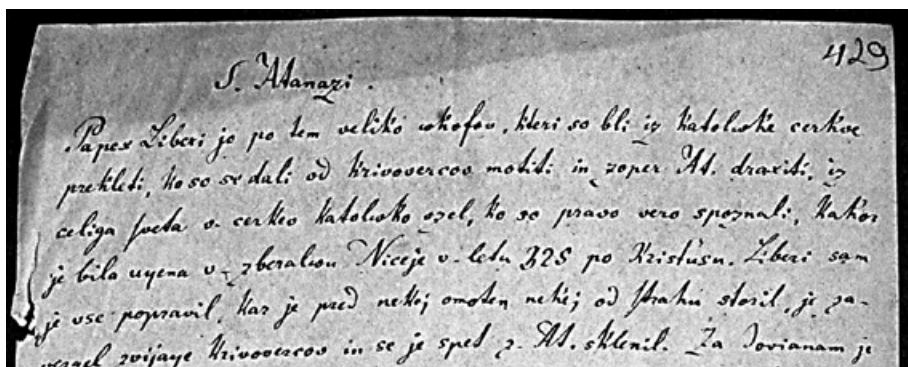 429
S. Atanazi.
Papex Liberi jo po tem veliko ukofov, kteri so bli iz katoluke cerkve
prekleti, ko so se dali od krivovercov motiti in zoper At. draxiti, iz
celiga sveta v cerkev katoluko vzel, ko so pravo vero spoznali, kakor
je bila uyena v zberaluu Niceje v letu 325 po Kristusu. Liberi sam
je vse popravil, kar je pred nekej omoten nekej od strahu storil, je za-
vergel zvijaye krivovercov in se je spet z At. sklenil. Za Jovianam je